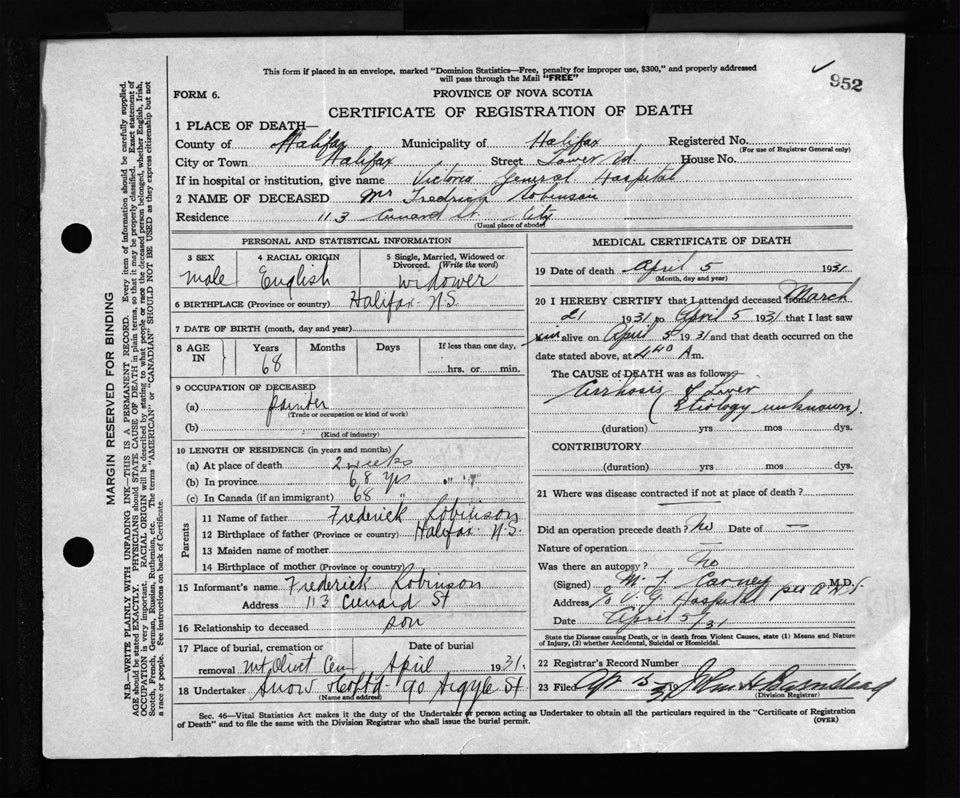 This form if placed in an envelope, marked "Dominion Statistics—Free, penalty for improper use, $300," and properly addressed
will pass through the Mail "FREE"
952
FORM 6.
PROVINCE OF NOVA SCOTIA
CERTIFICATE OF REGISTRATION OF DEATH
1 PLACE OF DEATH—
County of Halifax Municipality of Halifax Registered No.
(For use of Registrar General only)
City or Town Halifax Street Lower Wd House No.
If in hospital or institution, give name Victoria General Hospital
2 NAME OF DECEASED Mr Fredrick Robinson
Residence 113 Cunard St. City
(Usual place of abode)
PERSONAL AND STATISTICAL INFORMATION
3 SEX 4 RACIAL ORIGIN 5 Single, Married, Widowed or
Divorced. (Write the word)
male English widower
6 BIRTHPLACE (Province or country) Halifax N.S.
7 DATE OF BIRTH (month, day and year)
8 AGE IN Years Months Days If less than one day,
68 hrs. or min.
9 OCCUPATION OF DECEASED
(a) painter
(Trade or occupation or kind of work)
(b)
(Kind of industry)
10 LENGTH OF RESIDENCE (in years and months)
(a) At place of death 2 weeks
(b) In province 68 yrs
(c) In Canada (if an immigrant) 68 "
Parents
11 Name of father Frederick Robinson
12 Birthplace of father (Province or country) Halifax N.S.
13 Maiden name of mother
14 Birthplace of mother (Province or country)
15 Informant's name Frederick Robinson
Address 113 Cunard St
16 Relationship to deceased son
17 Place of burial, cremation or Date of burial
removal Mt Olivet Cem April 1931.
18 Undertaker Snow & Co Ltd 90 Argyle St
(Name and address)
MEDICAL CERTIFICATE OF DEATH
19 Date of death April 5 1931
(Month, day and year)
20 I HEREBY CERTIFY that I attended deceased from March
21 1931 to April 5 1931 that I last saw
him alive on April 5 1931 and that death occurred on the
date stated above, at 4:40 A m.
The CAUSE of DEATH was as follows
Cirrhosis of Liver
(Etiology unknown).
(duration) yrs mos dys.
CONTRIBUTORY
(duration) yrs mos dys.
21 Where was disease contracted if not at place of death?
Did an operation precede death? No Date of —
Nature of operation —
Was there an autopsy? No
(Signed) M. J. Carney M.D.
Address c/o V. G. Hospital
Date April 5/31
State the Disease causing Death, or in death from Violent Causes, state (1) Means and Nature
of Injury, (2) whether Accidental, Suicidal or Homicidal.
22 Registrar's Record Number
23 Filed Ap 15 31 John H Barnstead
(Division Registrar)
Sec. 46—Vital Statistics Act makes it the duty of the Undertaker or person acting as Undertaker to obtain all the particulars required in the "Certificate of Registration
of Death" and to file the same with the Division Registrar who shall issue the burial permit. (OVER)
MARGIN RESERVED FOR BINDING
N.B.—WRITE PLAINLY WITH UNFADING INK—THIS IS A PERMANENT RECORD. Every item of information should be carefully supplied.
AGE should be stated EXACTLY. PHYSICIANS should STATE CAUSE OF DEATH in plain terms, so that it may be properly classified. Exact statement of
OCCUPATION is very important. RACIAL ORIGIN will be described by stating to what people or race the deceased person belonged, whether English, Irish,
Scotch, French, German, Russian, Ruthenian, etc. The terms "AMERICAN" or "CANADIAN" SHOULD NOT BE USED as they express citizenship but not
a race or people. See instructions on back of Certificate.